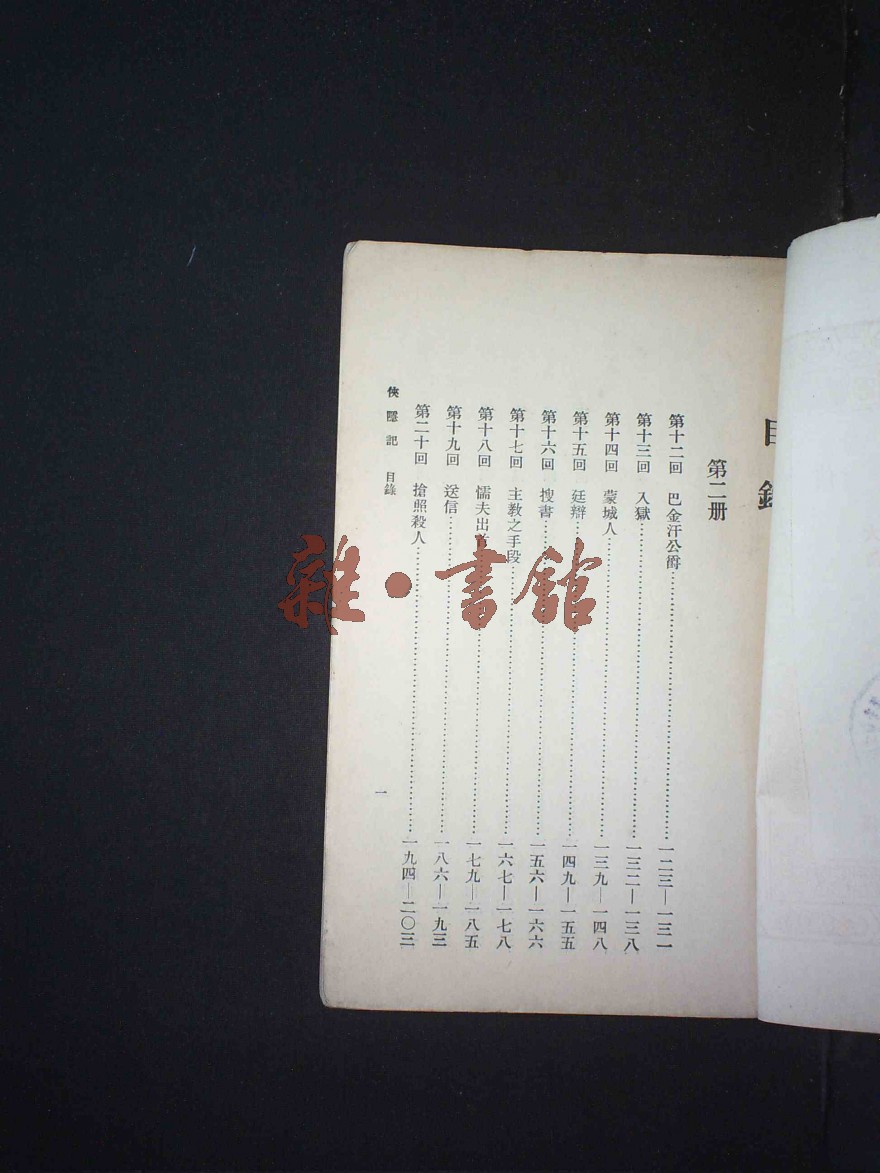 目錄
第二册
第十二回　巴金汗公爵……一二三—一三一
第十三回　入獄……一三二—一三八
第十四回　蒙城人……一三九—一四八
第十五回　廷辯……一四九—一五五
第十六回　搜書……一五六—一六六
第十七回　主教之手段……一六七—一七八
第十八回　懦夫出首……一七九—一八五
第十九回　送信……一八六—一九三
第二十回　搶照殺人……一九四—二〇三
俠隱記　目錄
一
雜·書館